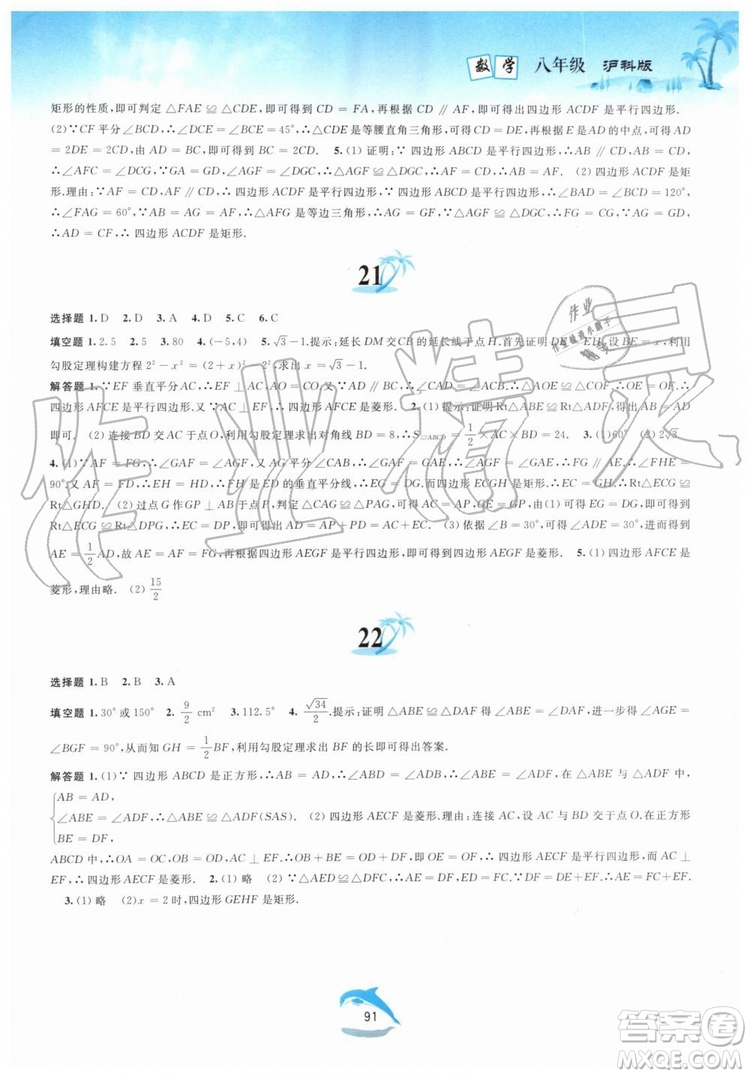 数学 八年级 沪科版
矩形的性质,即可判定 △FAE ≌ △CDE,即可得到 CD = FA,再根据 CD ∥ AF,即可得出四边形 ACDF 是平行四边形.
(2)∵ CF 平分 ∠BCD,∴ ∠DCE = 45°,∵ ∠CDE = 90°,∴ △CDE 是等腰直角三角形,∴ CD = DE,∵ E 是 AD 的中点,∴ AD
= 2DE = 2CD,由 AD = BC,即可得到 BC = 2CD. 5.(1)证明:∵ 四边形 ABCD 是平行四边形,∴ AB ∥ CD,∴ AB = CD,
∴ ∠AFC = ∠DCG,∵ GA = GD,∠AGF = ∠CGD,∴ △AGF ≌ △DGC,∴ AF = CD,∴ AB = AF. (2) 四边形 ACDF 是矩
形.理由:∵ AF = CD,AF ∥ CD,∴ 四边形 ACDF 是平行四边形,∵ 四边形 ABCD 是平行四边形,∴ ∠BAD = ∠BCD = 120°,
∴ ∠FAG = 60°,∵ AB = AG = AF,∴ △AFG 是等边三角形,∴ AG = GF,∵ △AGF ≌ △DGC,∴ FG = CG,∵ AG = GD,
∴ AD = CF,∴ 四边形 ACDF 是矩形.
21
选择题 1. D 2. D 3. A 4. D 5. C 6. C
填空题 1. 2.5 2. 5 3. 80 4. (-5,4) 5. √3 - 1.提示:延长 DM 交 CB 的延长线于点 H,首先证明 DE = EH,设 BE = x,利用
勾股定理构建方程 2² - x² = (2 + x)² - 2²,求出 x = √3 - 1.
解答题 1.∵ EF 垂直平分 AC,∴ EF ⊥ AC,AO = CO,
四边形 AFCE 是平行四边形.又∵ EF ⊥ AC,∴ 四边形 AFCE 是菱形. 2.(1)提示:证明
即可. (2) 连接 BD 交 AC 于点 O,利用勾股定理求出对角线 BD = 8,S▱ABCD = 1/2 × AC × BD = 24. 3.(1)60° (2)2√3
4.(1)∵ AF = FG,∴ ∠FAG = ∠FGA,∵ AG 平分 ∠CAB,∴ ∠CAG = ∠FAG,∴ ∠CAG = ∠FGA,∴ AC ∥ FG,∴ ∠FHE =
90°,又∵ AE = ED,∴ AH = HD,∴ FG 是线段 ED 的垂直平分线,∴ GE = GD,∠GDE = ∠GED,即可证得 Rt△ECG ≌
Rt△GHD. (2) 过点 G 作 GP ⊥ AB 于点 P,则易证 △CAG ≌ △PAG,即可得 AC = AP,GE = GP,由 (1) 可得 EG = DG,即可得到
Rt△ECG ≌ Rt△DPG,∴ EC = DP,即可得出 AD = AP + PD = AC + EC. (3)依据 ∠B = 30°,即可得到 ∠ADE = 30°,进而得到
AE = 1/2 AD,故 AE = AF = FG,再根据四边形 AEGF 是平行四边形,即可得到四边形 AEGF 是菱形. 5.(1) 四边形 AFCE 是
菱形,理由略. (2) 15/2
22
选择题 1. B 2. B 3. A
填空题 1. 30° 或 150° 2. 9/2 cm² 3. 112.5° 4. √34/2.提示:证明 △ABE ≌ △DAF 得 ∠ABE = ∠DAF,进一步得 ∠AGE =
∠BGF = 90°,从而知 GH = 1/2 BF,利用勾股定理求出 BF 的长即可得出答案.
解答题 1.(1)∵ 四边形 ABCD 是正方形,∴ AB = AD,∴ ∠ABD = ∠ADB,∴ ∠ABE = ∠ADF,在 △ABE 与 △ADF 中,
{AB = AD,
∠ABE = ∠ADF,∴ △ABE ≌ △ADF(SAS). (2) 四边形 AECF 是菱形.理由:连接 AC,设 AC 与 BD 交于点 O,∵ 在正方形
BE = DF,
ABCD 中,∴ OA = OC,OB = OD,AC ⊥ EF,∴ OB + BE = OD + DF,即 OE = OF,∴ 四边形 AECF 是平行四边形.∵ AC
⊥ EF,∴ 四边形 AECF 是菱形. 2.(1) 略 (2) 略
3.(1) 略 (2)x = 2 时,四边形 GEHF 是矩形.
91
作业精灵
答案圈
MXQE.COM